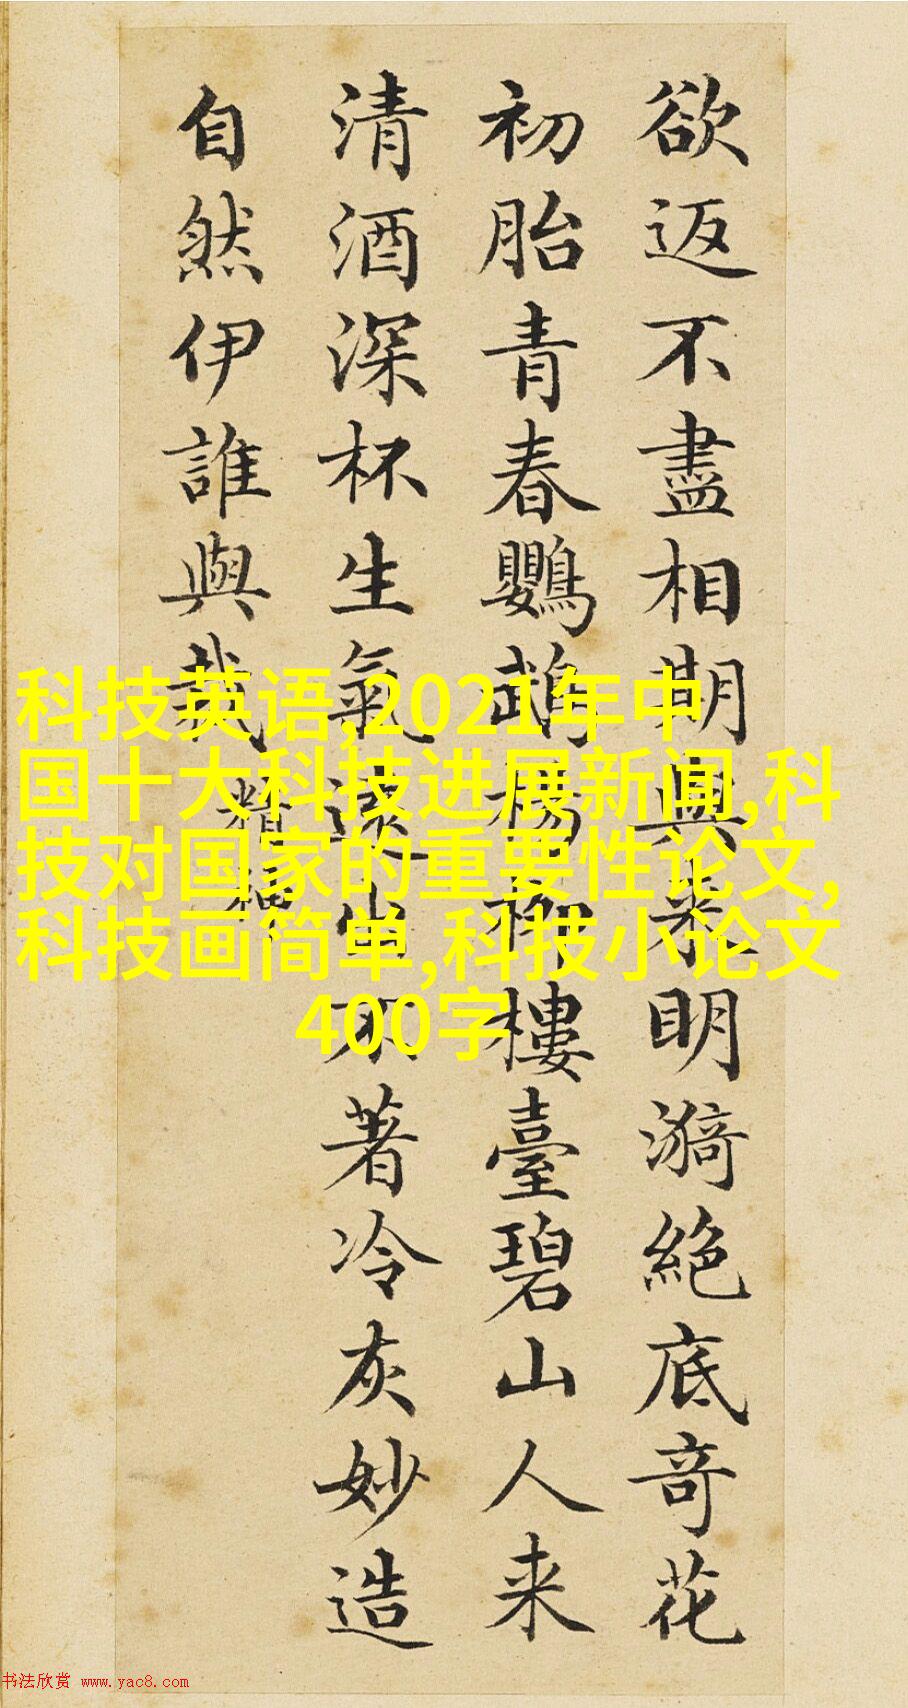 欲返不盡相期與来明漪絶底奇花
初胎青春鸚鵡楊柳樓臺碧山人来
清酒深杯生氣遠出不著冷灰妙造
自然伊誰與裁
精神
科技英语,2021年中
国十大科技进展新闻,科
技对国家的重要性论文,
科技画简单,科技小论文
400字
书法欣赏 www.yac8.com